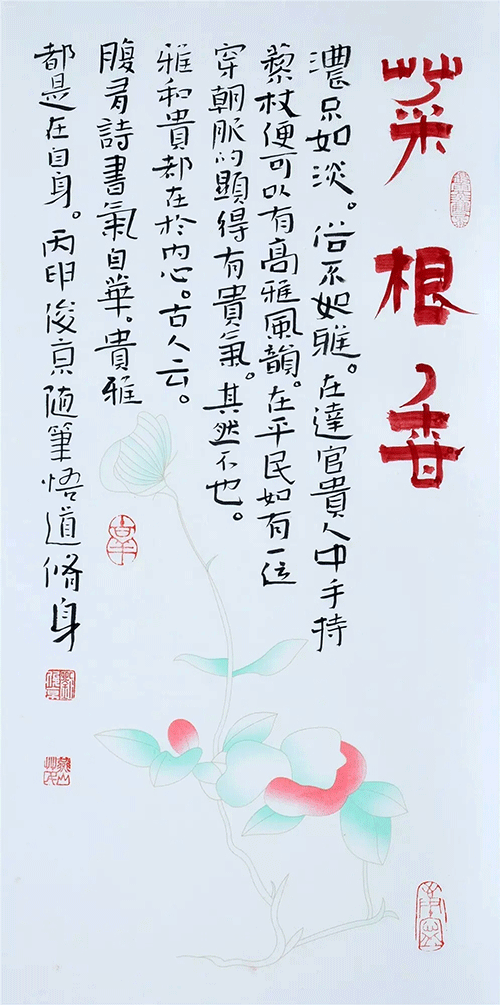 菜根香
濃不如淡。俗不如雅。在達官貴人中手持
藜杖便可以有高雅風韻。在平民如有一位
穿朝服的顯得有貴氣。其然不也。
雅和貴都在於内心。古人云。
腹有詩書氣自華。貴雅
都是在自身。丙申俊京随筆悟道脩身